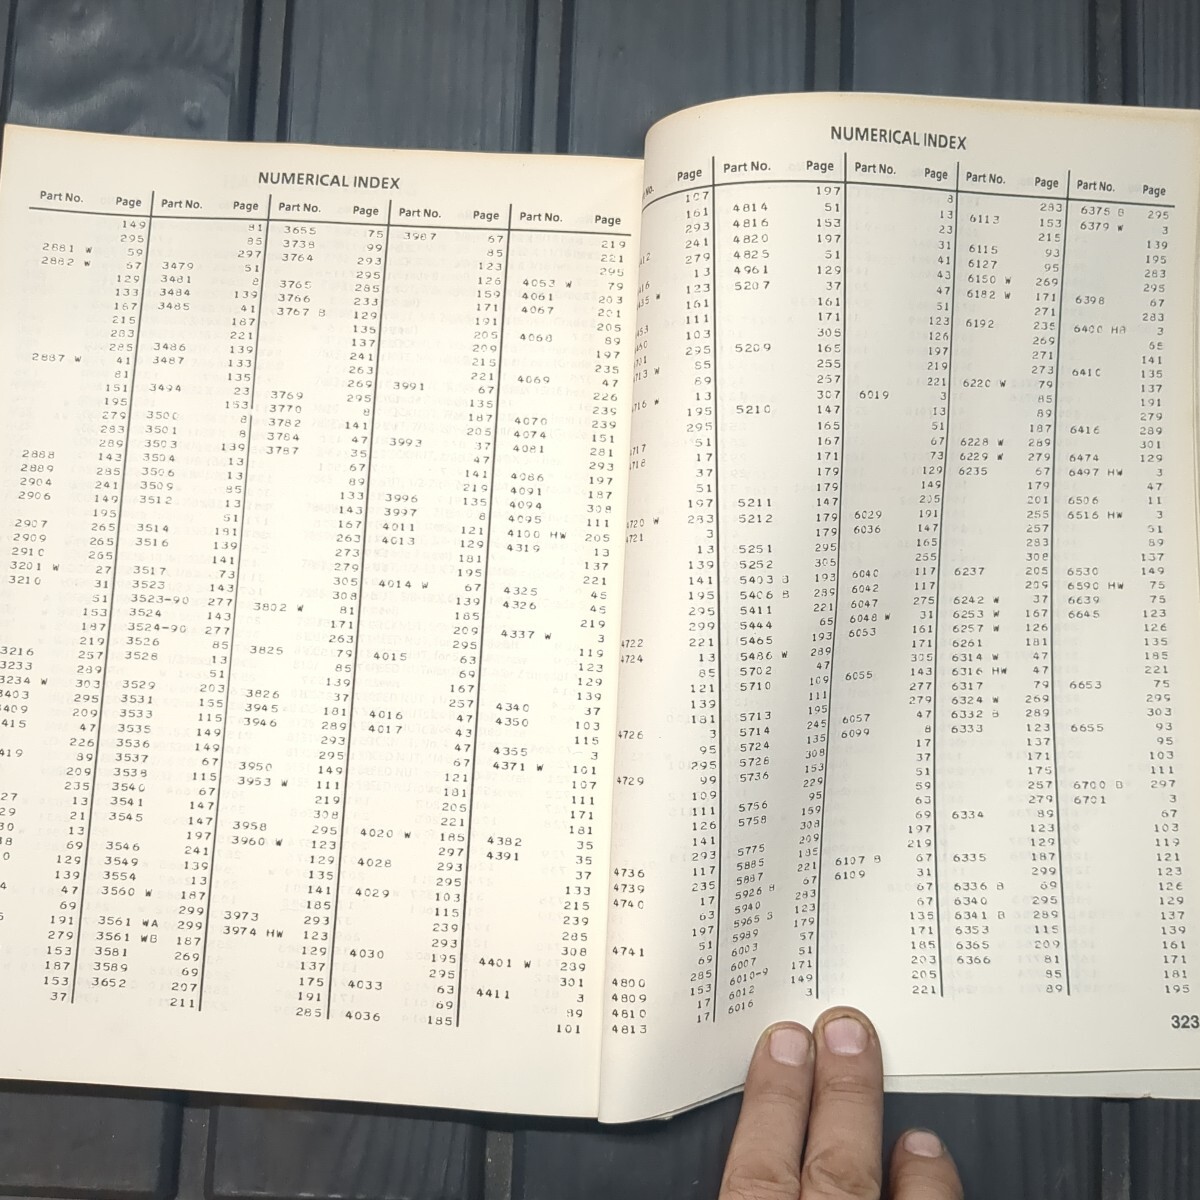 NUMERICAL INDEX
Part No. Page
149
295
2881 W 59
2882 W 67
129
133
167
215
283
285
2887 W 41
81
151
195
279
283
289
2888 143
2889 285
2904 241
2906 149
195
2907 265
2909 265
2910 265
3201 W 27
3210 31
51
153
187
219
3216 257
3233 289
3234 W 303
3403 295
3409 209
415 47
226
419 89
209
235
27 13
29 21
30 13
69
129
139
47
69
191
279
153
187
153
37
Part No. Page
81
85
297
3479 51
3481 8
3484 139
3485 41
187
221
3486 139
3487 133
135
3494 23
153
3500 8
3501 8
3503 139
3504 13
3506 13
3509 85
3512 13
51
3514 191
3516 139
141
3517 73
3523 143
3523-90 277
3524 143
3524-90 277
3526 85
3528 13
51
3529 203
3531 155
3533 115
3535 149
3536 149
3537 67
3538 115
3540 67
3541 147
3545 147
197
3546 241
3549 139
3554 13
3560 W 187
299
3561 WA 299
3561 WB 187
3581 269
3589 69
3652 207
211
Part No. Page
3655 75
3738 99
3764 293
295
3765 285
3766 233
3767 B 129
135
137
241
263
269
3769 295
3770 8
3782 141
3784 47
3787 35
67
89
133
143
167
263
273
279
305
308
3802 W 81
171
263
3825 79
85
139
3826 37
3945 181
3946 289
293
295
3950 149
3953 W 111
219
308
3958 295
3960 W 123
129
135
141
185
3973 293
3974 HW 123
129
137
175
191
285
Part No. Page
3987 67
85
123
126
159
171
191
205
209
215
221
3991 67
135
187
205
3993 37
47
141
219
3996 135
3997 8
4011 121
4013 129
181
195
4014 W 67
139
185
209
295
4015 63
69
167
257
4016 47
4017 43
47
67
121
181
205
221
4020 W 185
297
4028 293
295
4029 103
115
239
293
4030 195
295
4033 63
69
4036 185
Part No. Page
219
221
295
4053 W 79
4061 203
4067 201
205
4068 89
197
235
4069 47
226
239
4070 239
4074 151
4081 281
293
4086 197
4091 187
4094 308
4095 111
4100 HW 205
4319 13
137
221
4325 45
4326 45
219
4337 W 3
119
123
129
139
4340 37
4350 103
115
4355 3
4371 W 101
107
111
171
181
4382 35
4391 35
37
133
215
239
285
308
4401 W 239
301
4411 3
89
101
NUMERICAL INDEX
No. Page
107
161
293
241
279
13
123
161
111
103
295
85
89
13
195
295
51
17
37
51
197
4720 W 283
4721 3
13
139
141
195
295
299
4722 221
4724 13
85
121
139
181
4726 3
95
295
4729 99
109
111
126
141
293
4736 117
4739 235
4740 17
63
197
4741 51
69
4800 285
4809 153
4810 17
4813 17
Part No. Page
197
4814 51
4816 153
4820 197
4825 51
4961 129
5207 37
161
171
305
5209 165
255
257
307
5210 147
165
167
171
179
179
5211 147
5212 179
179
5251 295
5252 305
5403 B 193
5406 B 289
5411 221
5444 65
5465 193
5486 W 289
5702 47
5710 109
111
195
5713 245
5714 135
5724 308
5726 153
5736 229
95
5756 159
5758 308
209
5775 185
5885 221
5887 67
5926 B 283
5940 123
5965 B 179
5989 57
6003 51
6007 171
6010-9 149
6012 3
6016
Part No. Page
8
13
23
31
41
43
47
51
123
126
197
219
221
6019 3
13
51
67
73
129
149
205
6029 191
6036 147
165
255
6040 117
6042 117
6047 275
6048 W 31
6053 161
171
305
6055 143
277
279
6057 47
6099 8
17
37
51
59
63
69
197
219
6107 B 67
6109 31
67
67
135
171
185
203
205
221
Part No. Page
283
6113 153
215
6115 93
6127 95
6150 W 269
6182 W 171
271
6192 235
269
271
273
6220 W 79
85
89
187
6228 W 289
6229 W 279
6235 67
179
201
255
257
283
308
6237 205
209
6242 W 37
6253 W 167
6257 W 126
6261 181
6314 W 47
6316 HW 47
6317 79
6324 W 269
6332 B 289
6333 123
137
171
175
257
279
6334 89
123
129
6335 187
299
6336 B 69
6340 295
6341 B 289
6353 115
6365 209
6366 81
85
89
Part No. Page
6375 B 295
6379 W 3
139
195
283
295
6398 67
283
6400 HB 3
65
141
6410 135
137
191
279
6416 289
301
6474 129
6497 HW 3
47
6506 11
6516 HW 3
51
89
137
6530 149
6590 HW 75
6639 75
6645 123
126
135
185
221
6653 75
295
303
6655 93
95
103
111
6700 B 297
6701 3
67
103
119
121
123
126
129
137
139
161
171
181
195
323